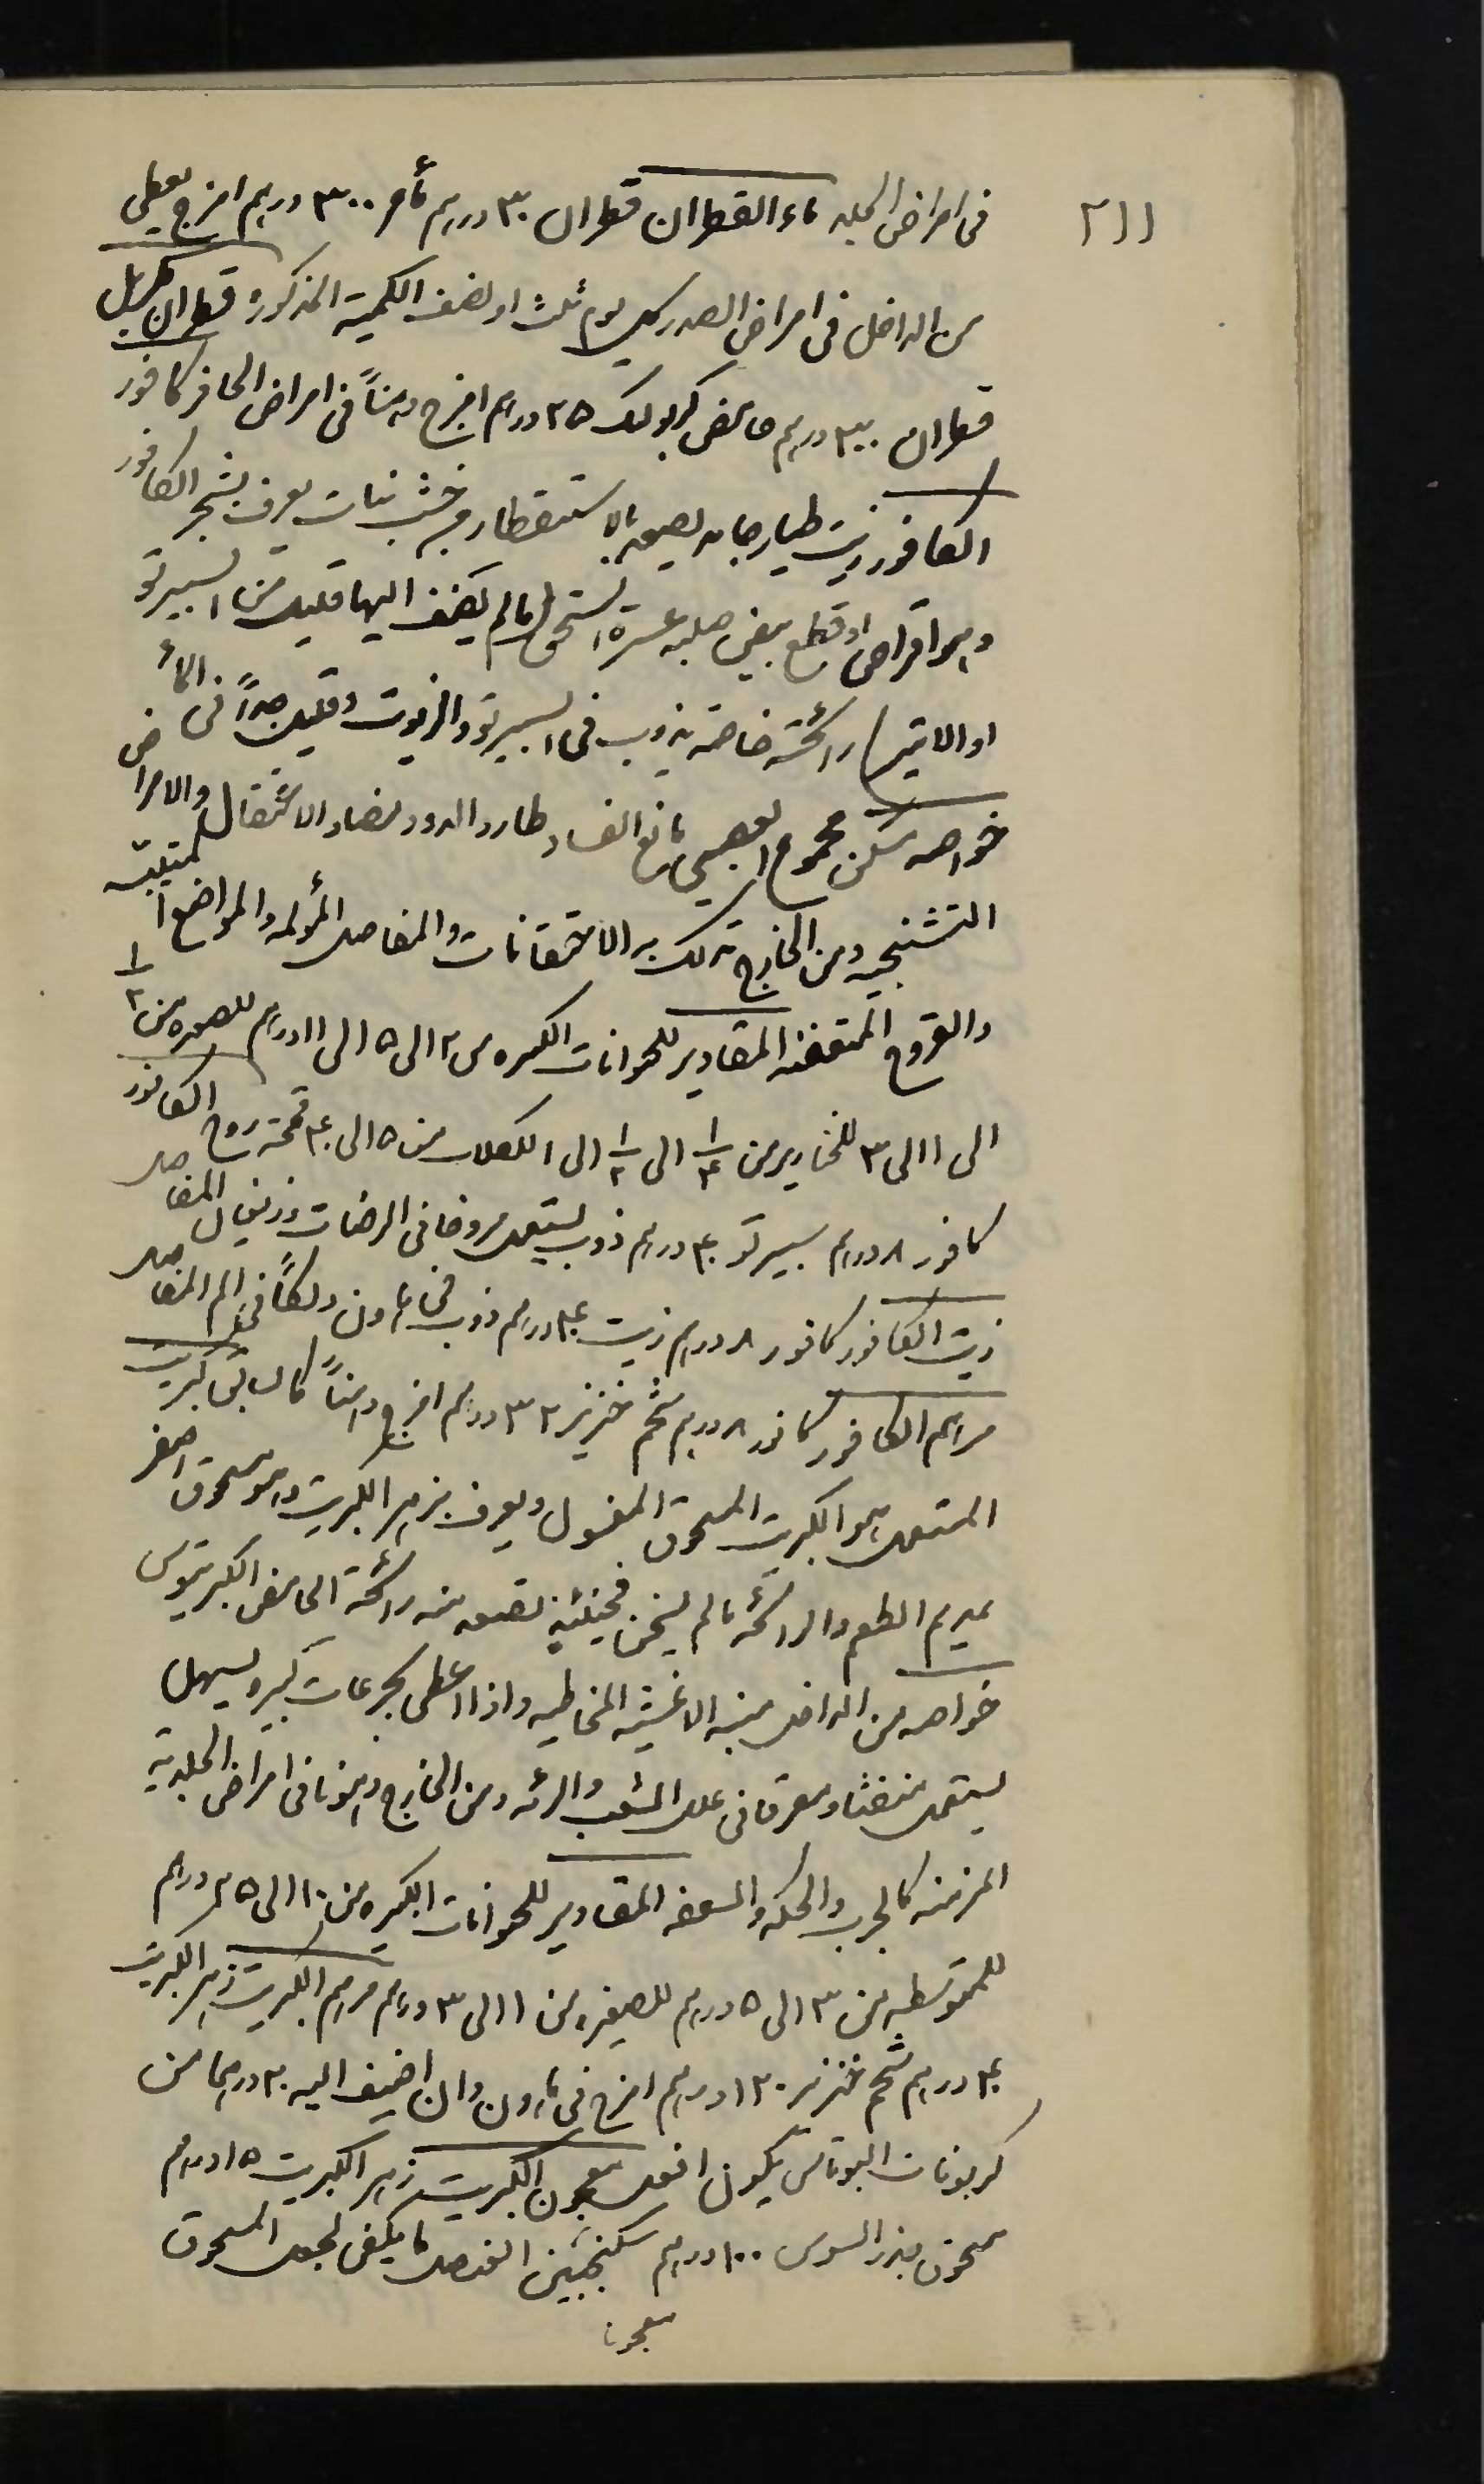 ٢١١
فى امراض الجلد ماء القطران قطران ٣٠ درهم ماء ٣٠٠ درهم امزج يعطى
من الداخل فى امراض الصدر كل يوم ثلث او نصف الكمية المذكوره قطران
قطران ٣٠ درهم حامض كربوليك ٢٥ درهم امزج دهناً فى امراض الحافر كافور
الكافور زيت طيار جامد يصعد بالاستقطار من خشب نبات يعرف بشجر الكافور
وهو اقراص او قطع بيض صلبه عسرة السحق ما لم يضف اليها قليل من السبيرتو
او الاتير رائحته خاصة يذوب فى السبيرتو والزيوت وقليل جداً فى الماء
خواصه مسكن مجموع العصبي مانع الفساد طارد الدود مضاد الاشتعال والامراض
التشنجيه ومن الخارج تدلك به الاحتقانات والمفاصل المؤلمه والمواضع الملتهبه
والقروح المتعفنه المقادير للحيوانات الكبيره من ٢ الى ٥ الى ١١ درهم للصغيره من ١/٢
الى ١ الى ٣ للخنازير من ١/٤ الى ١/٢ الى ١ للكلاب من ٥ الى ٤٠ قمحه روح الكافور
كافور ٨ درهم سبيرتو ٤٠ درهم ذوب يستعمل مروخا فى الرضات المفاصل
زيت الكافور كافور ٨ درهم زيت ٤٠ درهم ذوب فى هاون دلكاً فى الم المفاصل
مرهم الكافور كافور ٨ درهم شحم خنزير ٣٢ درهم امزج دهناً كالسابق كبريت
المستعمل هو الكبريت المسحوق المغسول ويعرف بزهر الكبريت وهو مسحوق اصفر
عديم الطعم والرائحه ما لم يسخن فحينئذ تصعد منه رائحة الحامض الكبريتوس
خواصه من الداخل منبه الاغشيه المخاطيه واذا اعطى بجرعات كبيره يسهل
يستعمل منفثا ومعرقا فى علل الشعب والرئه ومن الخارج دهونا فى امراض الجلديه
المزمنه كالجرب والحكه والسعفه المقادير للحيوانات الكبيره من ١٠ الى ٢٥ درهم
للمتوسطه من ٣ الى ٥ درهم للصغيره من ١ الى ٣ درهم مرهم الكبريت زهر الكبريت
٤٠ درهم شحم خنزير ١٢٠ درهم امزج فى هاون وان اضيف اليه ٢٠ درهما من
كربونات البوتاس يكون افعل معجون الكبريت زهر الكبريت ١٥ درهم
مسحوق جذر السوس ١٠٠ درهم سكنجبين العنصل ما يكفى لجعل المسحوق
معجونا